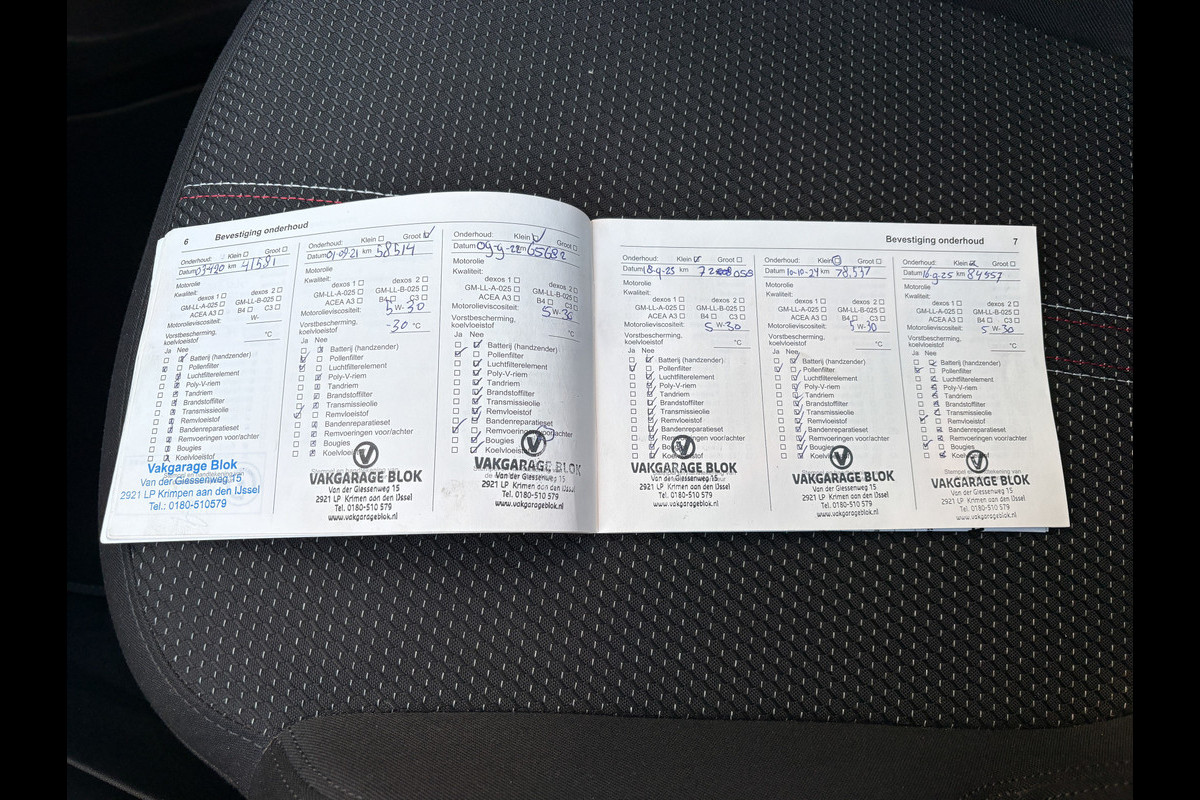 6
Bevestiging onderhoud
Onderhoud: Klein Groot
Datum km 41581
Motorolie
Kwaliteit:
dexos 1 dexos 2
GM-LL-A-025 GM-LL-B-025
ACEA A3 B4 C3
Motorolieviscositeit: W-
Vorstbescherming,
koelvloeistof °C
Ja Nee
Batterij (handzender)
Pollenfilter
Luchtfilterelement
Poly-V-riem
Tandriem
Brandstoffilter
Transmissieolie
Remvloeistof
Bandenreparatieset
Remvoeringen voor/achter
Bougies
Koelvloeistof
Vakgarage Blok
Van der Giessenweg 15
2921 LP Krimpen aan den IJssel
Tel.: 0180-510579
Onderhoud: Klein Groot
Datum 01-09-21 km 58514
Motorolie
Kwaliteit:
dexos 1 dexos 2
GM-LL-A-025 GM-LL-B-025
ACEA A3 B4 C3
Motorolieviscositeit: 5 W- 30
Vorstbescherming,
koelvloeistof -30 °C
Ja Nee
Batterij (handzender)
Pollenfilter
Luchtfilterelement
Poly-V-riem
Tandriem
Brandstoffilter
Transmissieolie
Remvloeistof
Bandenreparatieset
Remvoeringen voor/achter
Bougies
Koelvloeistof
VAKGARAGE BLOK
Van der Giessenweg 15
2921 LP Krimpen a/d IJssel
Tel. 0180-510 579
www.vakgarageblok.nl
Onderhoud: Klein Groot
Datum 09-9-22 km 65682
Motorolie
Kwaliteit:
dexos 1 dexos 2
GM-LL-A-025 GM-LL-B-025
ACEA A3 B4 C3
Motorolieviscositeit: 5 W- 30
Vorstbescherming,
koelvloeistof °C
Ja Nee
Batterij (handzender)
Pollenfilter
Luchtfilterelement
Poly-V-riem
Tandriem
Brandstoffilter
Transmissieolie
Remvloeistof
Bandenreparatieset
Remvoeringen voor/achter
Bougies
Koelvloeistof
VAKGARAGE BLOK
Van der Giessenweg 15
2921 LP Krimpen a/d IJssel
Tel. 0180-510 579
www.vakgarageblok.nl
Bevestiging onderhoud 7
Onderhoud: Klein Groot
Datum km
Motorolie
Kwaliteit:
dexos 1 dexos 2
GM-LL-A-025 GM-LL-B-025
ACEA A3 B4 C3
Motorolieviscositeit: 5 W- 30
Vorstbescherming,
koelvloeistof °C
Ja Nee
Batterij (handzender)
Pollenfilter
Luchtfilterelement
Poly-V-riem
Tandriem
Brandstoffilter
Transmissieolie
Remvloeistof
Bandenreparatieset
Remvoeringen voor/achter
VAKGARAGE BLOK
Van der Giessenweg 15
2921 LP Krimpen a/d IJssel
Tel. 0180-510 579
www.vakgarageblok.nl
Onderhoud: Klein Groot
Datum 10-10-24 km 78.537
Motorolie
Kwaliteit:
dexos 1 dexos 2
GM-LL-A-025 GM-LL-B-025
ACEA A3 B4 C3
Motorolieviscositeit: 5 W- 30
Vorstbescherming,
koelvloeistof °C
Ja Nee
Batterij (handzender)
Pollenfilter
Luchtfilterelement
Poly-V-riem
Tandriem
Brandstoffilter
Transmissieolie
Remvloeistof
Bandenreparatieset
Remvoeringen voor/achter
Bougies
Koelvloeistof
VAKGARAGE BLOK
Van der Giessenweg 15
2921 LP Krimpen a/d IJssel
Tel. 0180-510 579
www.vakgarageblok.nl
Onderhoud: Klein Groot
Datum 16-9-25 km 84557
Motorolie
Kwaliteit:
dexos 1 dexos 2
GM-LL-A-025 GM-LL-B-025
ACEA A3 B4 C3
Motorolieviscositeit: 5 W- 30
Vorstbescherming,
koelvloeistof °C
Ja Nee
Batterij (handzender)
Pollenfilter
Luchtfilterelement
Poly-V-riem
Tandriem
Brandstoffilter
Transmissieolie
Remvloeistof
Bandenreparatieset
Remvoeringen voor/achter
Bougies
Koelvloeistof
Stempel en handtekening van
VAKGARAGE BLOK
Van der Giessenweg 15
2921 LP Krimpen a/d IJssel
Tel. 0180-510 579
www.vakgarageblok.nl